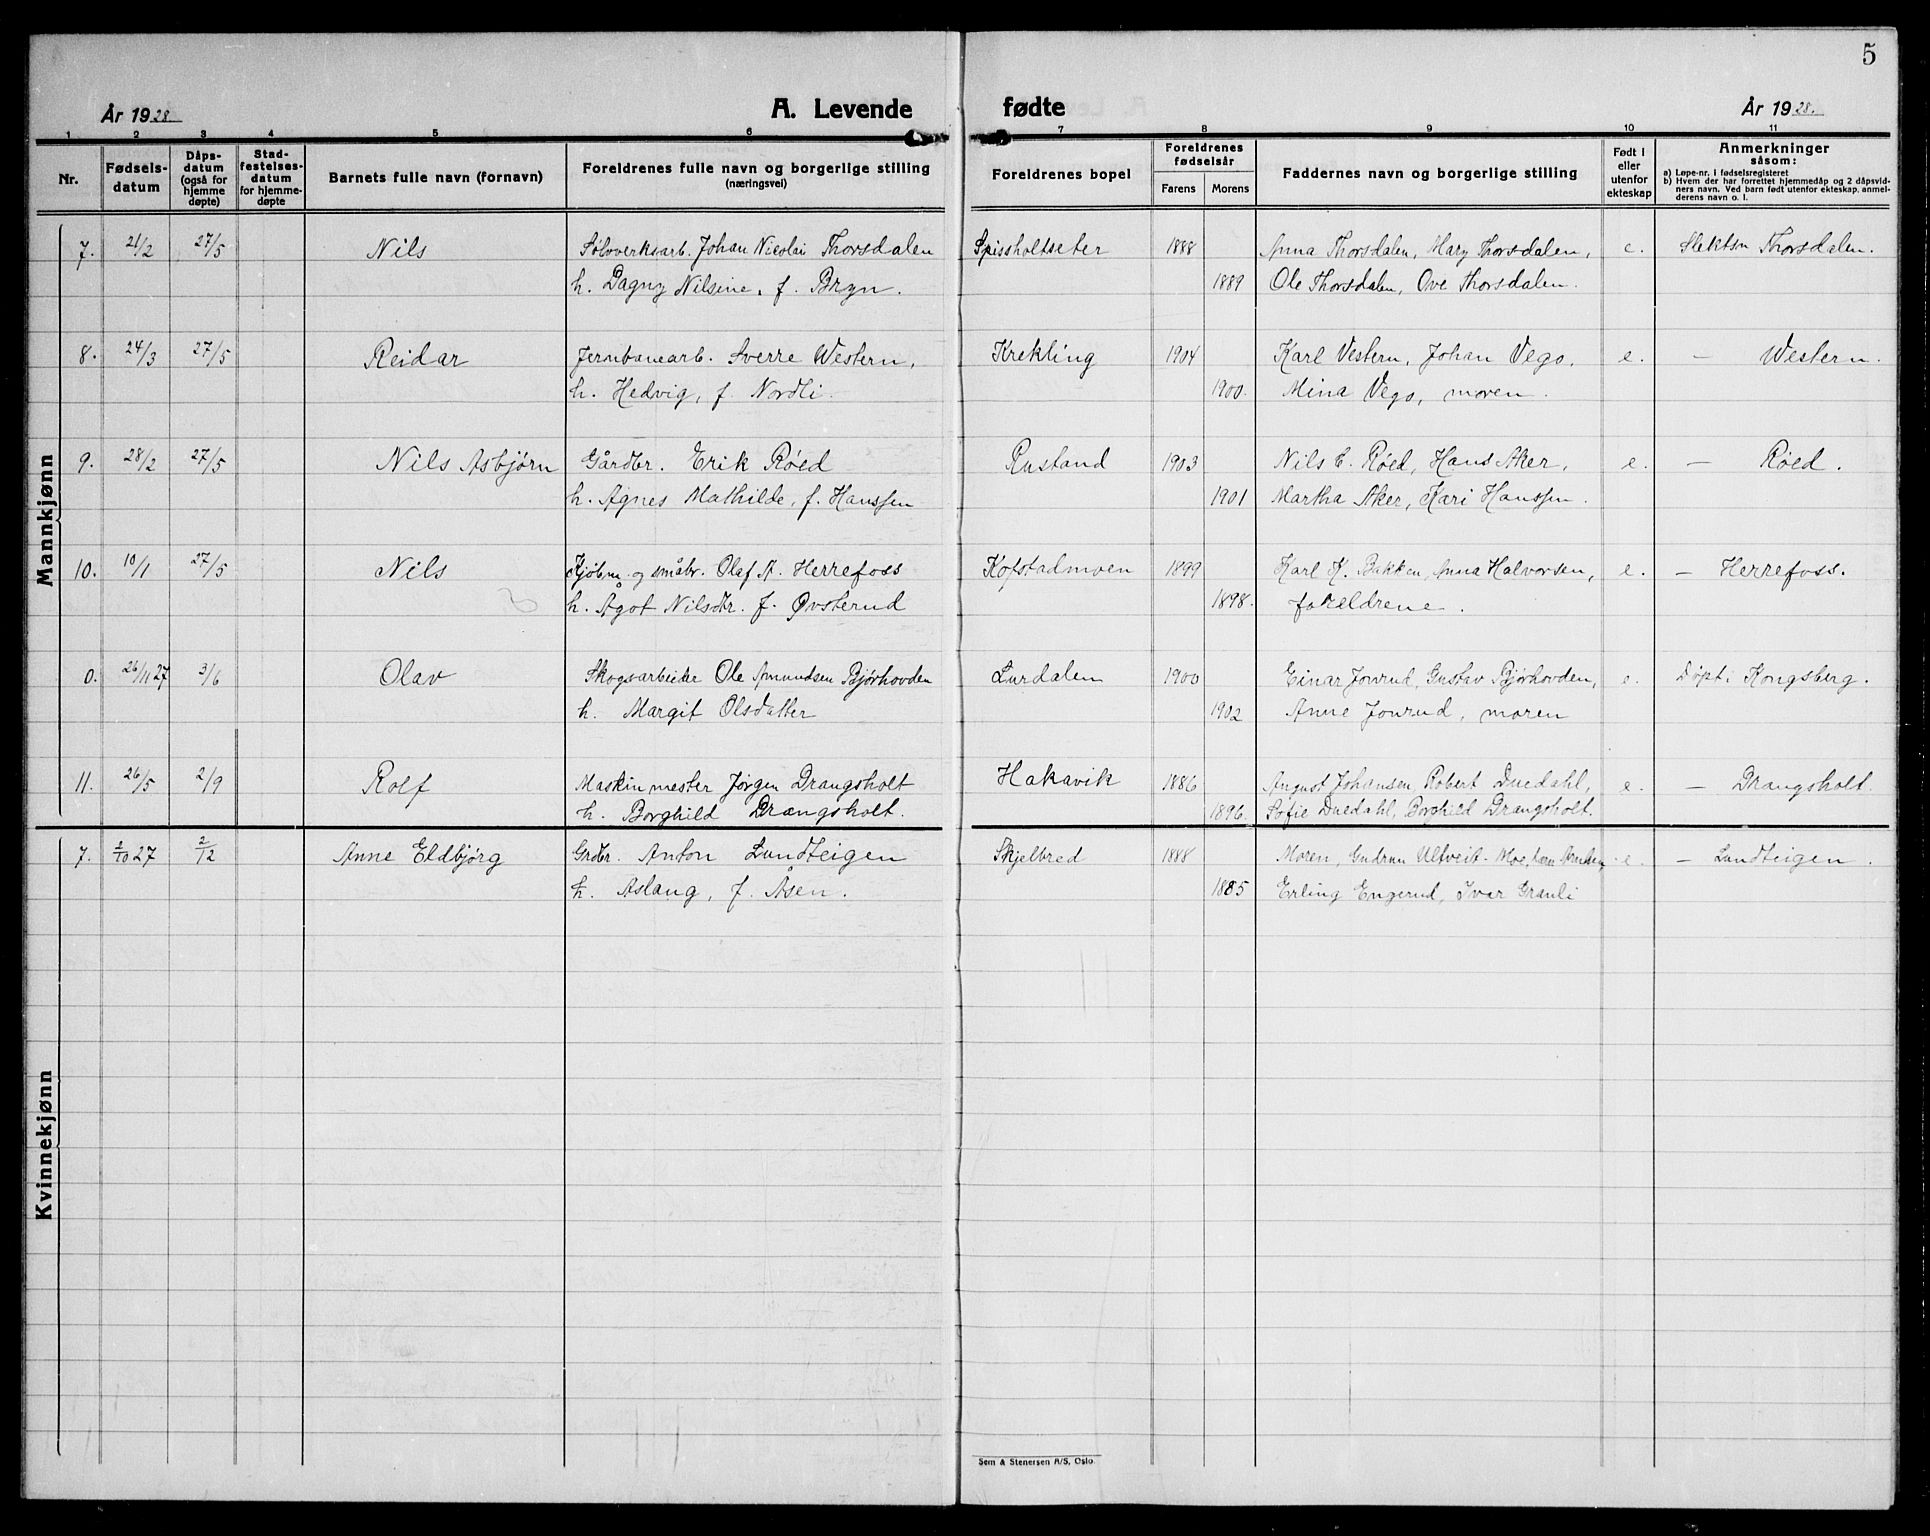 5
År 1928
A. Levende
fødte
År 1928.
1 2 3 4 5 6 7 8 9 10 11
Nr.
Fødselsdatum
Dåpsdatum (også for hjemme døpte)
Stadfestelsesdatum for hjemmedøpte
Barnets fulle navn (fornavn)
Foreldrenes fulle navn og borgerlige stilling (næringsvei)
Foreldrenes bopel
Foreldrenes fødselsår
Farens Morens
Faddernes navn og borgerlige stilling
Født i eller utenfor ekteskap
Anmerkninger såsom:
a) Løpe-nr. i fødselsregisteret
b) Hvem der har forrettet hjemmedåp og 2 dåpsvidners navn. Ved barn født utenfor ekteskap, anmelderens navn o. l.
Mannkjønn
7. 21/2 27/5 Nils Sølvverksarb. Johan Nicolai Thorsdalen Spissholtseter 1888 Anna Thorsdalen, Mary Thorsdalen, e. Slektsn Thorsdalen.
h. Dagny Nilsine, f. Bryn. 1889 Ole Thorsdalen, Ove Thorsdalen.
8. 24/3 27/5 Reidar Jernbanearb. Sverre Western, Krekling 1904 Karl Vestern, Johan Vego, e. — Western.
h. Hedvig, f. Nordli. 1900. Mina Vego, moren.
9. 28/2 27/5 Nils Asbjørn Gårdbr. Erik Røed Rustand 1903 Nils E. Røed, Hans Aker, e. — Røed.
h. Agnes Mathilde, f. Hanssen 1901 Martha Aker, Kari Hanssen.
10. 10/1 27/5 Nils Kjøbm. og småbr. Olaf A. Herrefoss Kofstadmoen 1899 Karl K. Bakken, Anna Halvorsen, e. — Herrefoss.
h. Ågot Nilsdtr. f. Øvsterud 1898. foreldrene.
0. 26/11 27 3/6 Olav Skogsarbeider Ole Amundsen Bjørhovden Lurdalen 1900 Einar Jonrud, Gustav Bjørhovden, e. Døpt i Kongsberg.
h. Margit Olsdatter 1902 Anne Jonrud, moren
11. 26/5 2/9 Rolf Maskinmester Jørgen Drangsholt Hakavik 1886 August Johansen, Robert Duedahl, e. — Drangsholt.
h. Borghild Drangsholt. 1896. Sofie Duedahl, Borghild Drangsholt.
Kvinnekjønn
7. 2/10 27 2/12 Anne Eldbjørg Grdbr. Anton Lundteigen Skjelbred 1888 Moren, Gudrun Ulfveit-Moe, e. — Lundteigen.
h. Aslaug, f. Åsen. 1885 Erling Engerud, Ivar Granli
Sem & Stenersen A/S, Oslo